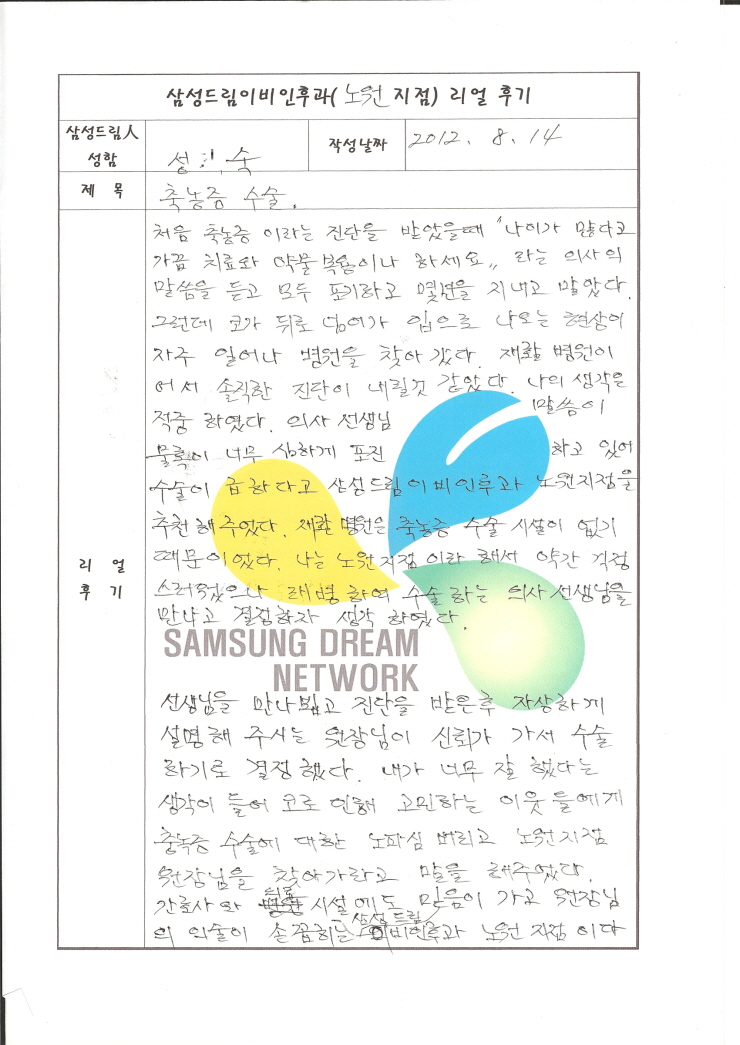 삼성드림이비인후과(노원 지점) 리얼 후기
삼성드림人
성함
성 숙
작성날짜
2012. 8. 14
제 목
축농증 수술.
리 얼
후 기
처음 축농증 이라는 진단을 받았을때 "나이가 많다고
가끔 치료와 약물복용이나 하세요" 라는 의사의
말씀을 듣고 모두 포기하고 몇년을 지내고 말았다.
그런데 코가 뒤로 넘어가 입으로 나오는 현상이
자주 일어나 병원을 찾아 갔다. 재활 병원이
어서 솔직한 진단이 내릴것 같았다. 나의 생각은
적중 하였다. 의사 선생님 말씀이
물혹이 너무 심하게 포진 하고 있어
수술이 급하다고 삼성드림이비인후과 노원지점을
추천해주었다. 재활 병원은 축농증 수술 시설이 없기
때문이었다. 나는 노원지점 이라 해서 약간 걱정
스러웠으나 래병하여 수술하는 의사 선생님을
만나고 결정하자 생각 하였다.
SAMSUNG DREAM
NETWORK
선생님을 만나뵙고 진단을 받은후 자상하게
설명해 주시는 원장님이 신뢰가 가서 수술
하기로 결정했다. 내가 너무 잘 했다는
생각이 들어 코로 인해 고민하는 이웃들에게
충농증 수술에 대한 노파심 버리고 노원지점
원장님을 찾아가라고 말을 해주었다.
간호사와 의료 시설에도 믿음이 가고 원장님
의 의술이 손꼽히는 삼성드림이비인후과 노원 지점 이다